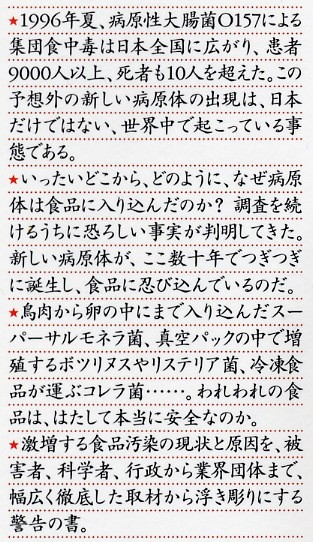 ★1996年夏、病原性大腸菌O157による
集団食中毒は日本全国に広がり、患者
9000人以上、死者も10人を超えた。この
予想外の新しい病原体の出現は、日本
だけではない、世界中で起こっている事
態である。
★いったいどこから、どのように、なぜ病原
体は食品に入り込んだのか? 調査を続
けるうちに恐ろしい事実が判明してきた。
新しい病原体が、ここ数十年でつぎつぎ
に誕生し、食品に忍び込んでいるのだ。
★鳥肉から卵の中にまで入り込んだスー
パーサルモネラ菌、真空パックの中で増
殖するボツリヌスやリステリア菌、冷凍食
品が運ぶコレラ菌……。われわれの食
品は、はたして本当に安全なのか。
★激増する食品汚染の現状と原因を、被
害者、科学者、行政から業界団体まで、
幅広く徹底した取材から浮き彫りにする
警告の書。